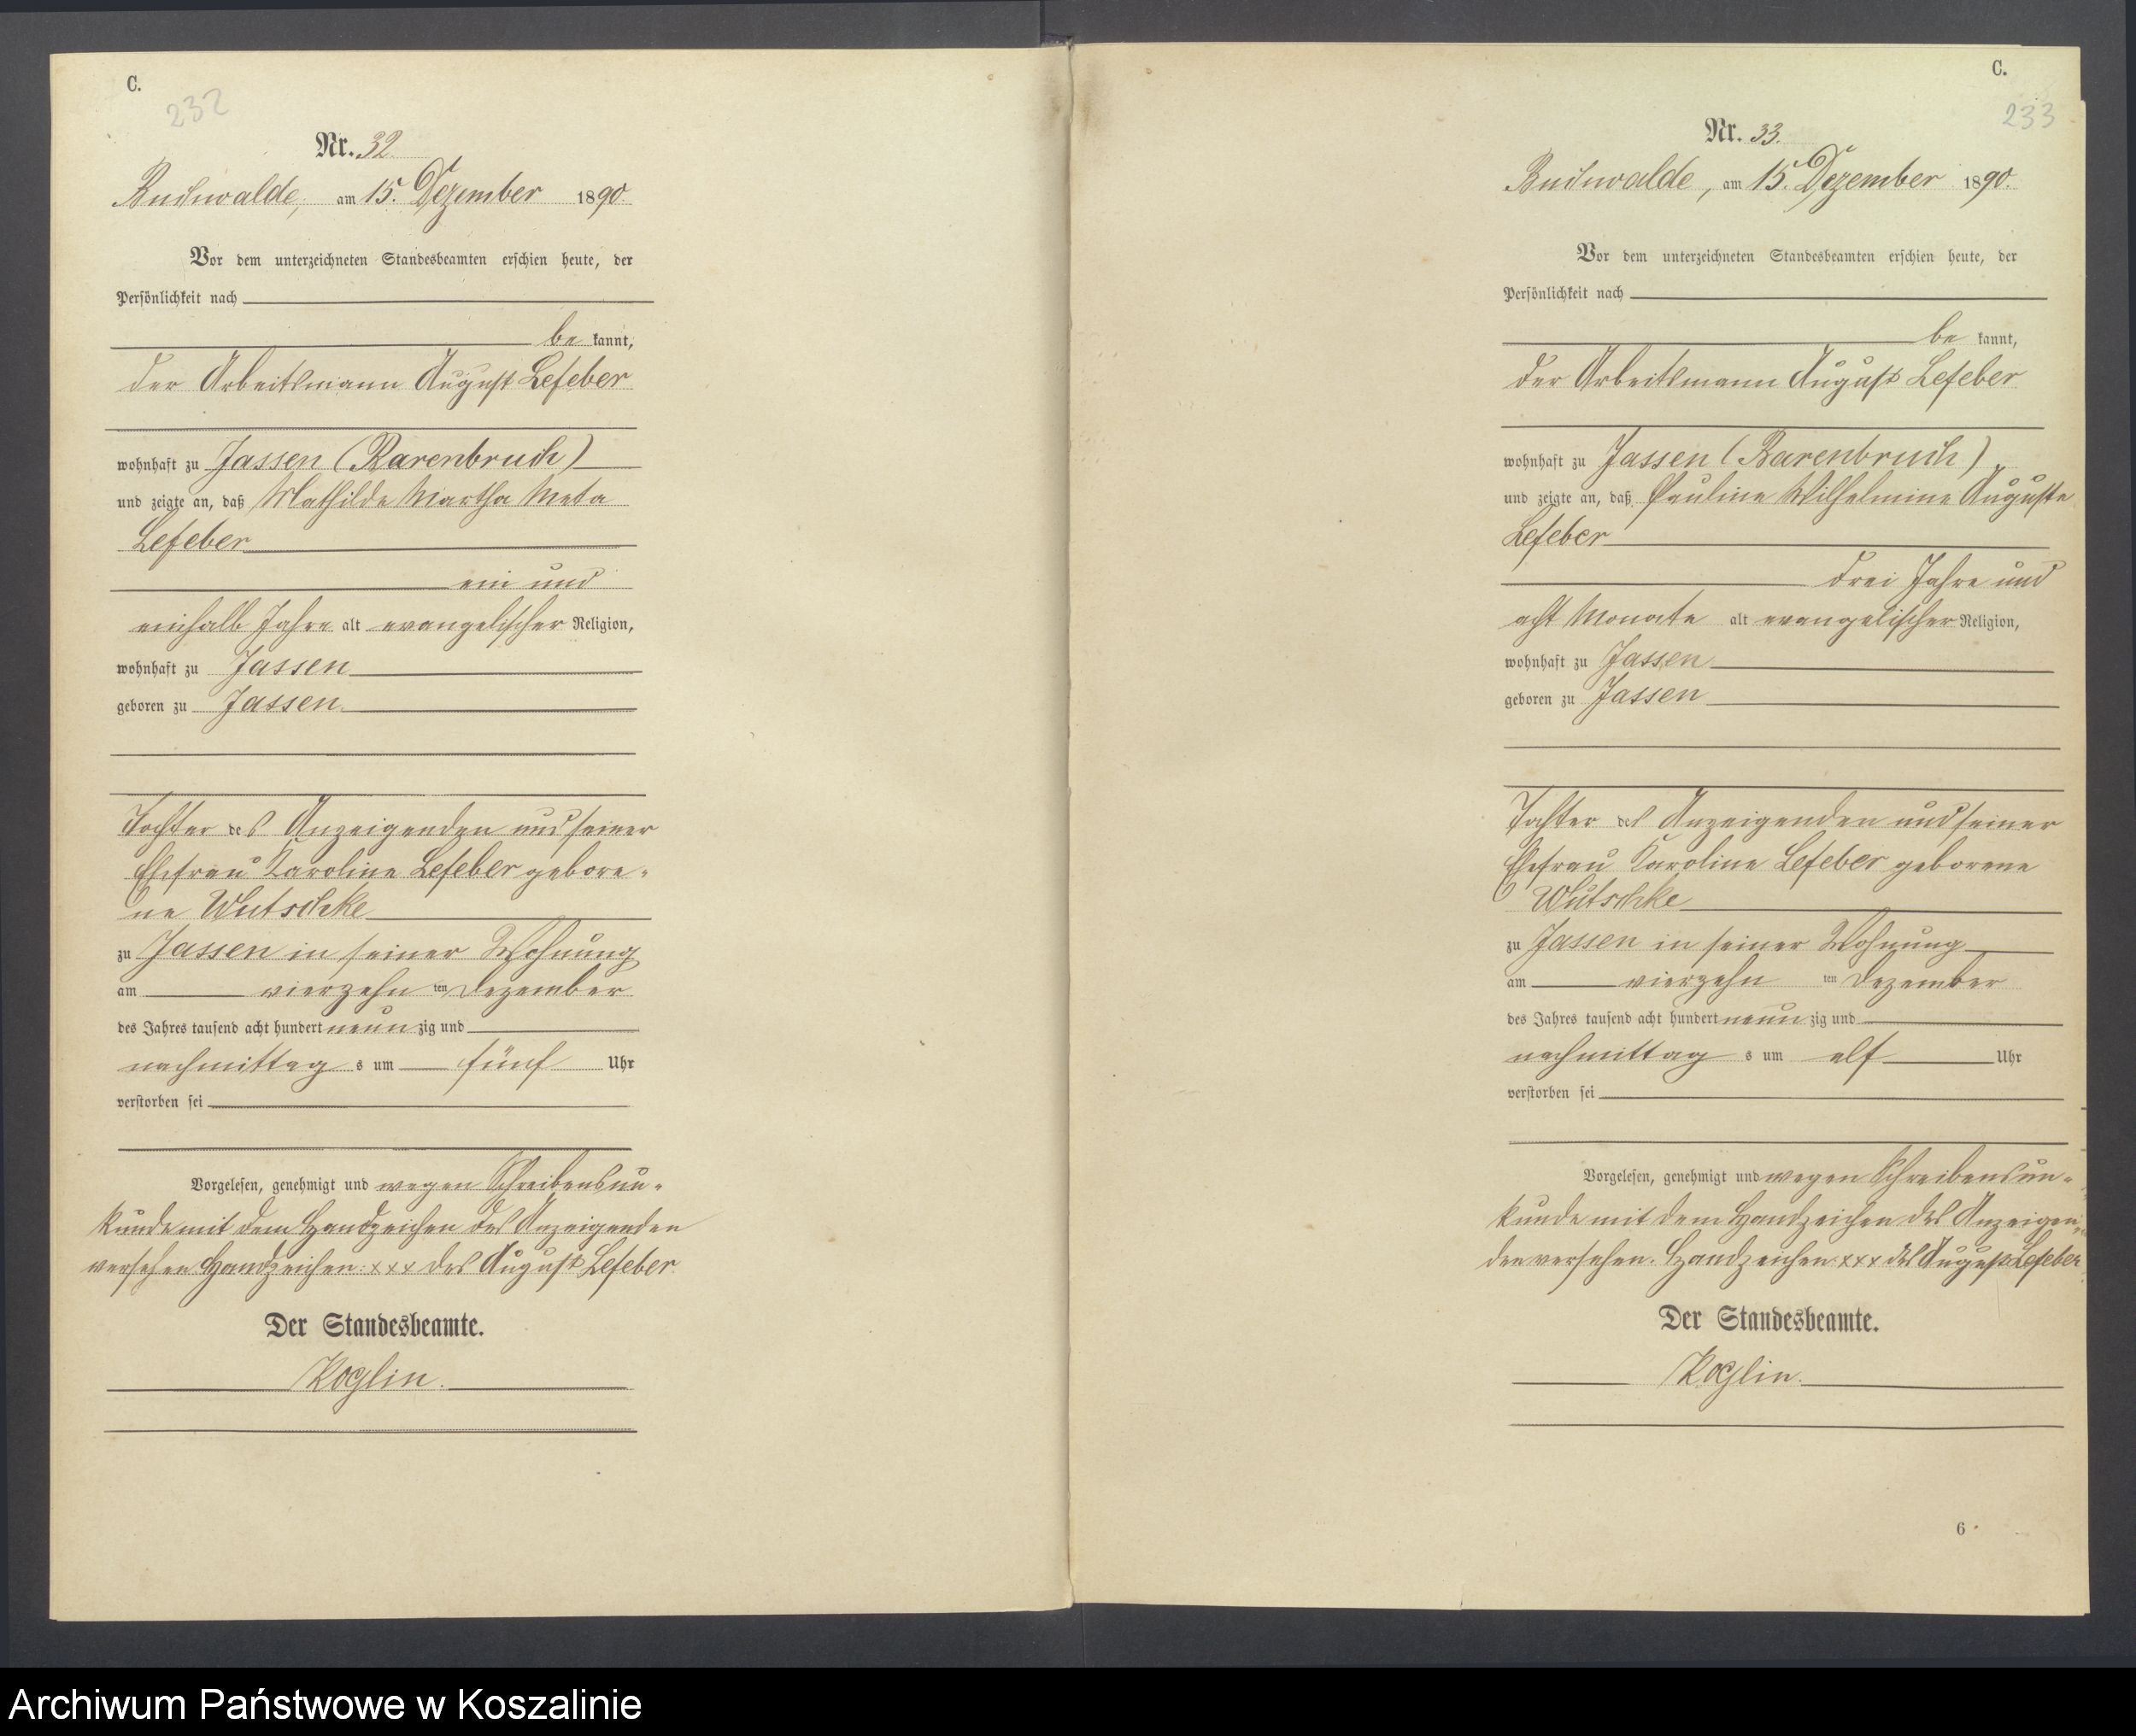 C.
232
Nr. 32
Buchwalde, am 15. Dezember 1890.
Vor dem unterzeichneten Standesbeamten erschien heute, der
Persönlichkeit nach
be kannt,
der Arbeitsmann August Lefeber
wohnhaft zu Jassen (Barenbruch)
und zeigte an, daß Mathilde Martha Meta
Lefeber
ein und
einhalb Jahre alt evangelischer Religion,
wohnhaft zu Jassen
geboren zu Jassen
Tochter des Anzeigenden und seiner
Ehefrau Karoline Lefeber gebore-
ne Wutschke
zu Jassen in seiner Wohnung
am vierzehn ten Dezember
des Jahres tausend acht hundert neun zig und
nachmittag s um fünf Uhr
verstorben sei
Vorgelesen, genehmigt und wegen Schreibensun-
kunde mit dem Handzeichen des Anzeigenden
versehen Handzeichen: xxx des August Lefeber
Der Standesbeamte.
Koglin.
C.
233
Nr. 33.
Buchwalde, am 15. Dezember 1890.
Vor dem unterzeichneten Standesbeamten erschien heute, der
Persönlichkeit nach
be kannt,
der Arbeitsmann August Lefeber
wohnhaft zu Jassen (Barenbruch)
und zeigte an, daß Pauline Wilhelmine Auguste
Lefeber
drei Jahre und
acht Monate alt evangelischer Religion,
wohnhaft zu Jassen
geboren zu Jassen
Tochter des Anzeigenden und seiner
Ehefrau Karoline Lefeber geborene
Wutschke
zu Jassen in seiner Wohnung
am vierzehn ten Dezember
des Jahres tausend acht hundert neun zig und
nachmittag s um elf Uhr
verstorben sei
Vorgelesen, genehmigt und wegen Schreibensun-
kunde mit dem Handzeichen des Anzeigen-
den versehen. Handzeichen: xxx des August Lefeber
Der Standesbeamte.
Koglin.
6
Archiwum Państwowe w Koszalinie